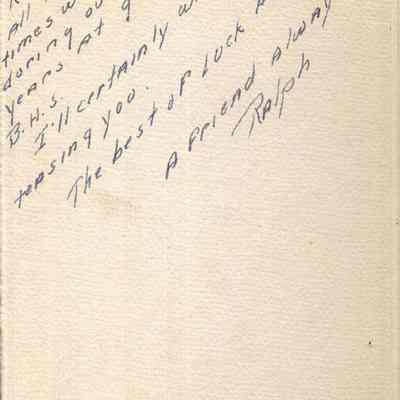 All
times w
doring ou
years at g
B.H.S.
I'll certainly w
teasing you.
The best of luck
A friend alway
Ralph